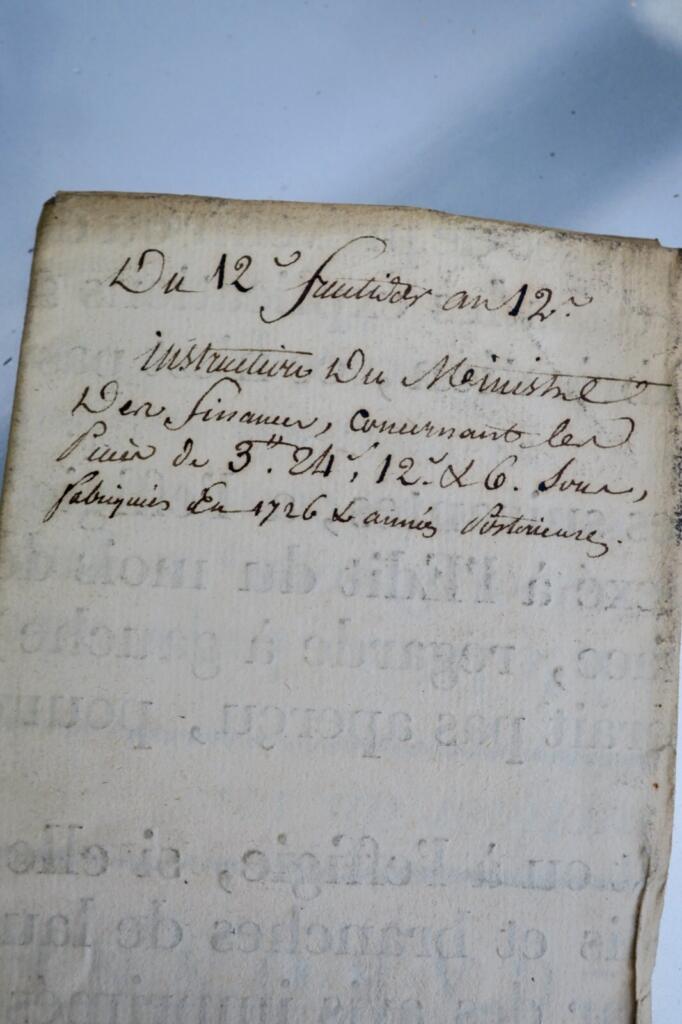 Du 12.e fructidor an 12.e
instruction Du Ministre
Des finances, concernant les
Pieces de 3.tt 24.s, 12.s & 6. Sous,
fabriquées En 1726 & années Postérieures.
exé à l'Edit du mois de
ce, regarde à gauche
rait pas aperçu, pour
t ou à l'effigie, si elle
is et branches de lau